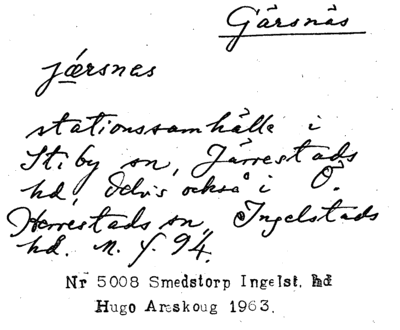 Gärsnäs
jæ̱rsnes
stationssamhälle i
St. by sn, Järrestads
hd, delvis också i Ö.
Herrestads sn, Ingelstads
hd. n. f. 94.
Nr 5008 Smedstorp Ingelst. hd
Hugo Areskoug 1963.